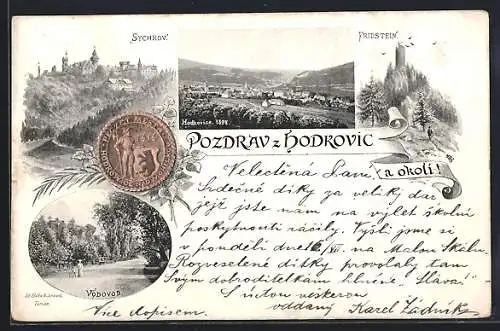 SYCHROV.
FRIDŠTEIN.
Hodkovice. 1898.
POZDRAV z HODKOVIC
a okolí!
Velectěná Paní
Srdečné díky za veliký dar
jejž jste nám na výlet školní
poskytnouti ráčily. Vyšli jsme si
v pondělí dne VII na Malou Skálu.
Rozveselené dítky provolaly tam
Svým dobroditelkám hlučné "Sláva!"
S úctou veškerou
oddaný Karel Žádník
Více dopisem.
VODOVOD
Turnov.